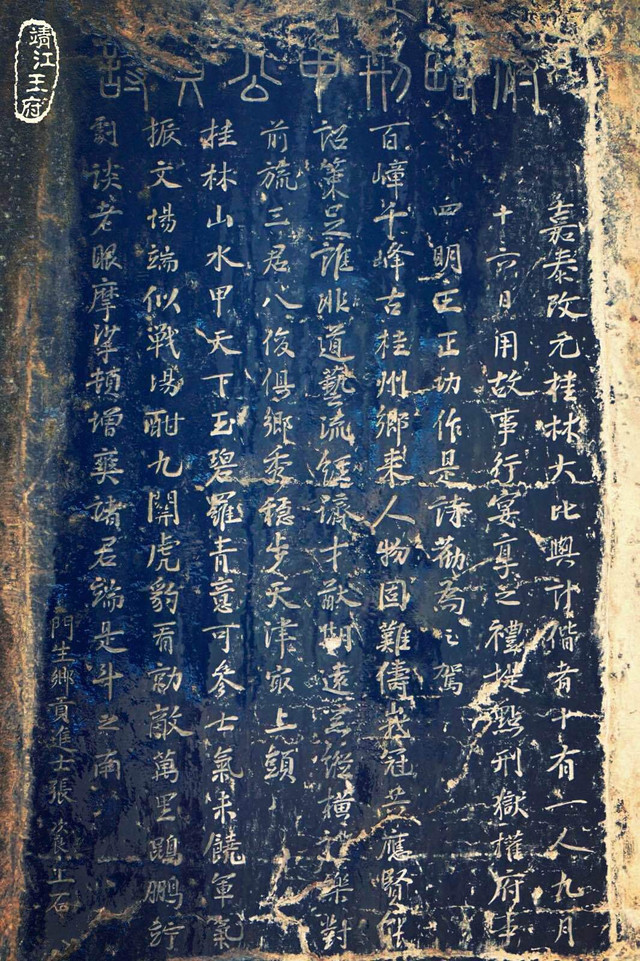 靖江王府
府略刑中公詩
嘉泰改元桂林大比與計偕者十有一人九月
十六日用故事行宴享之禮提點刑獄權府事
四明王正功作是詩勸為之駕
百嶂千峰古桂州鄉来人物固難儔峩冠共應賢能
詔策足誰非道藝流經濟才猷期遠器縱橫禮樂對
前旒三君八俊俱鄉秀穩步天津最上頭
桂林山水甲天下玉碧羅青意可參士氣未饒軍氣
振文場端似戰場酣九關虎豹看勍敵萬里鵾鵬佇
劇談老眼摩挲頓增爽諸君端是斗之南
門生鄉貢進士張次良上石